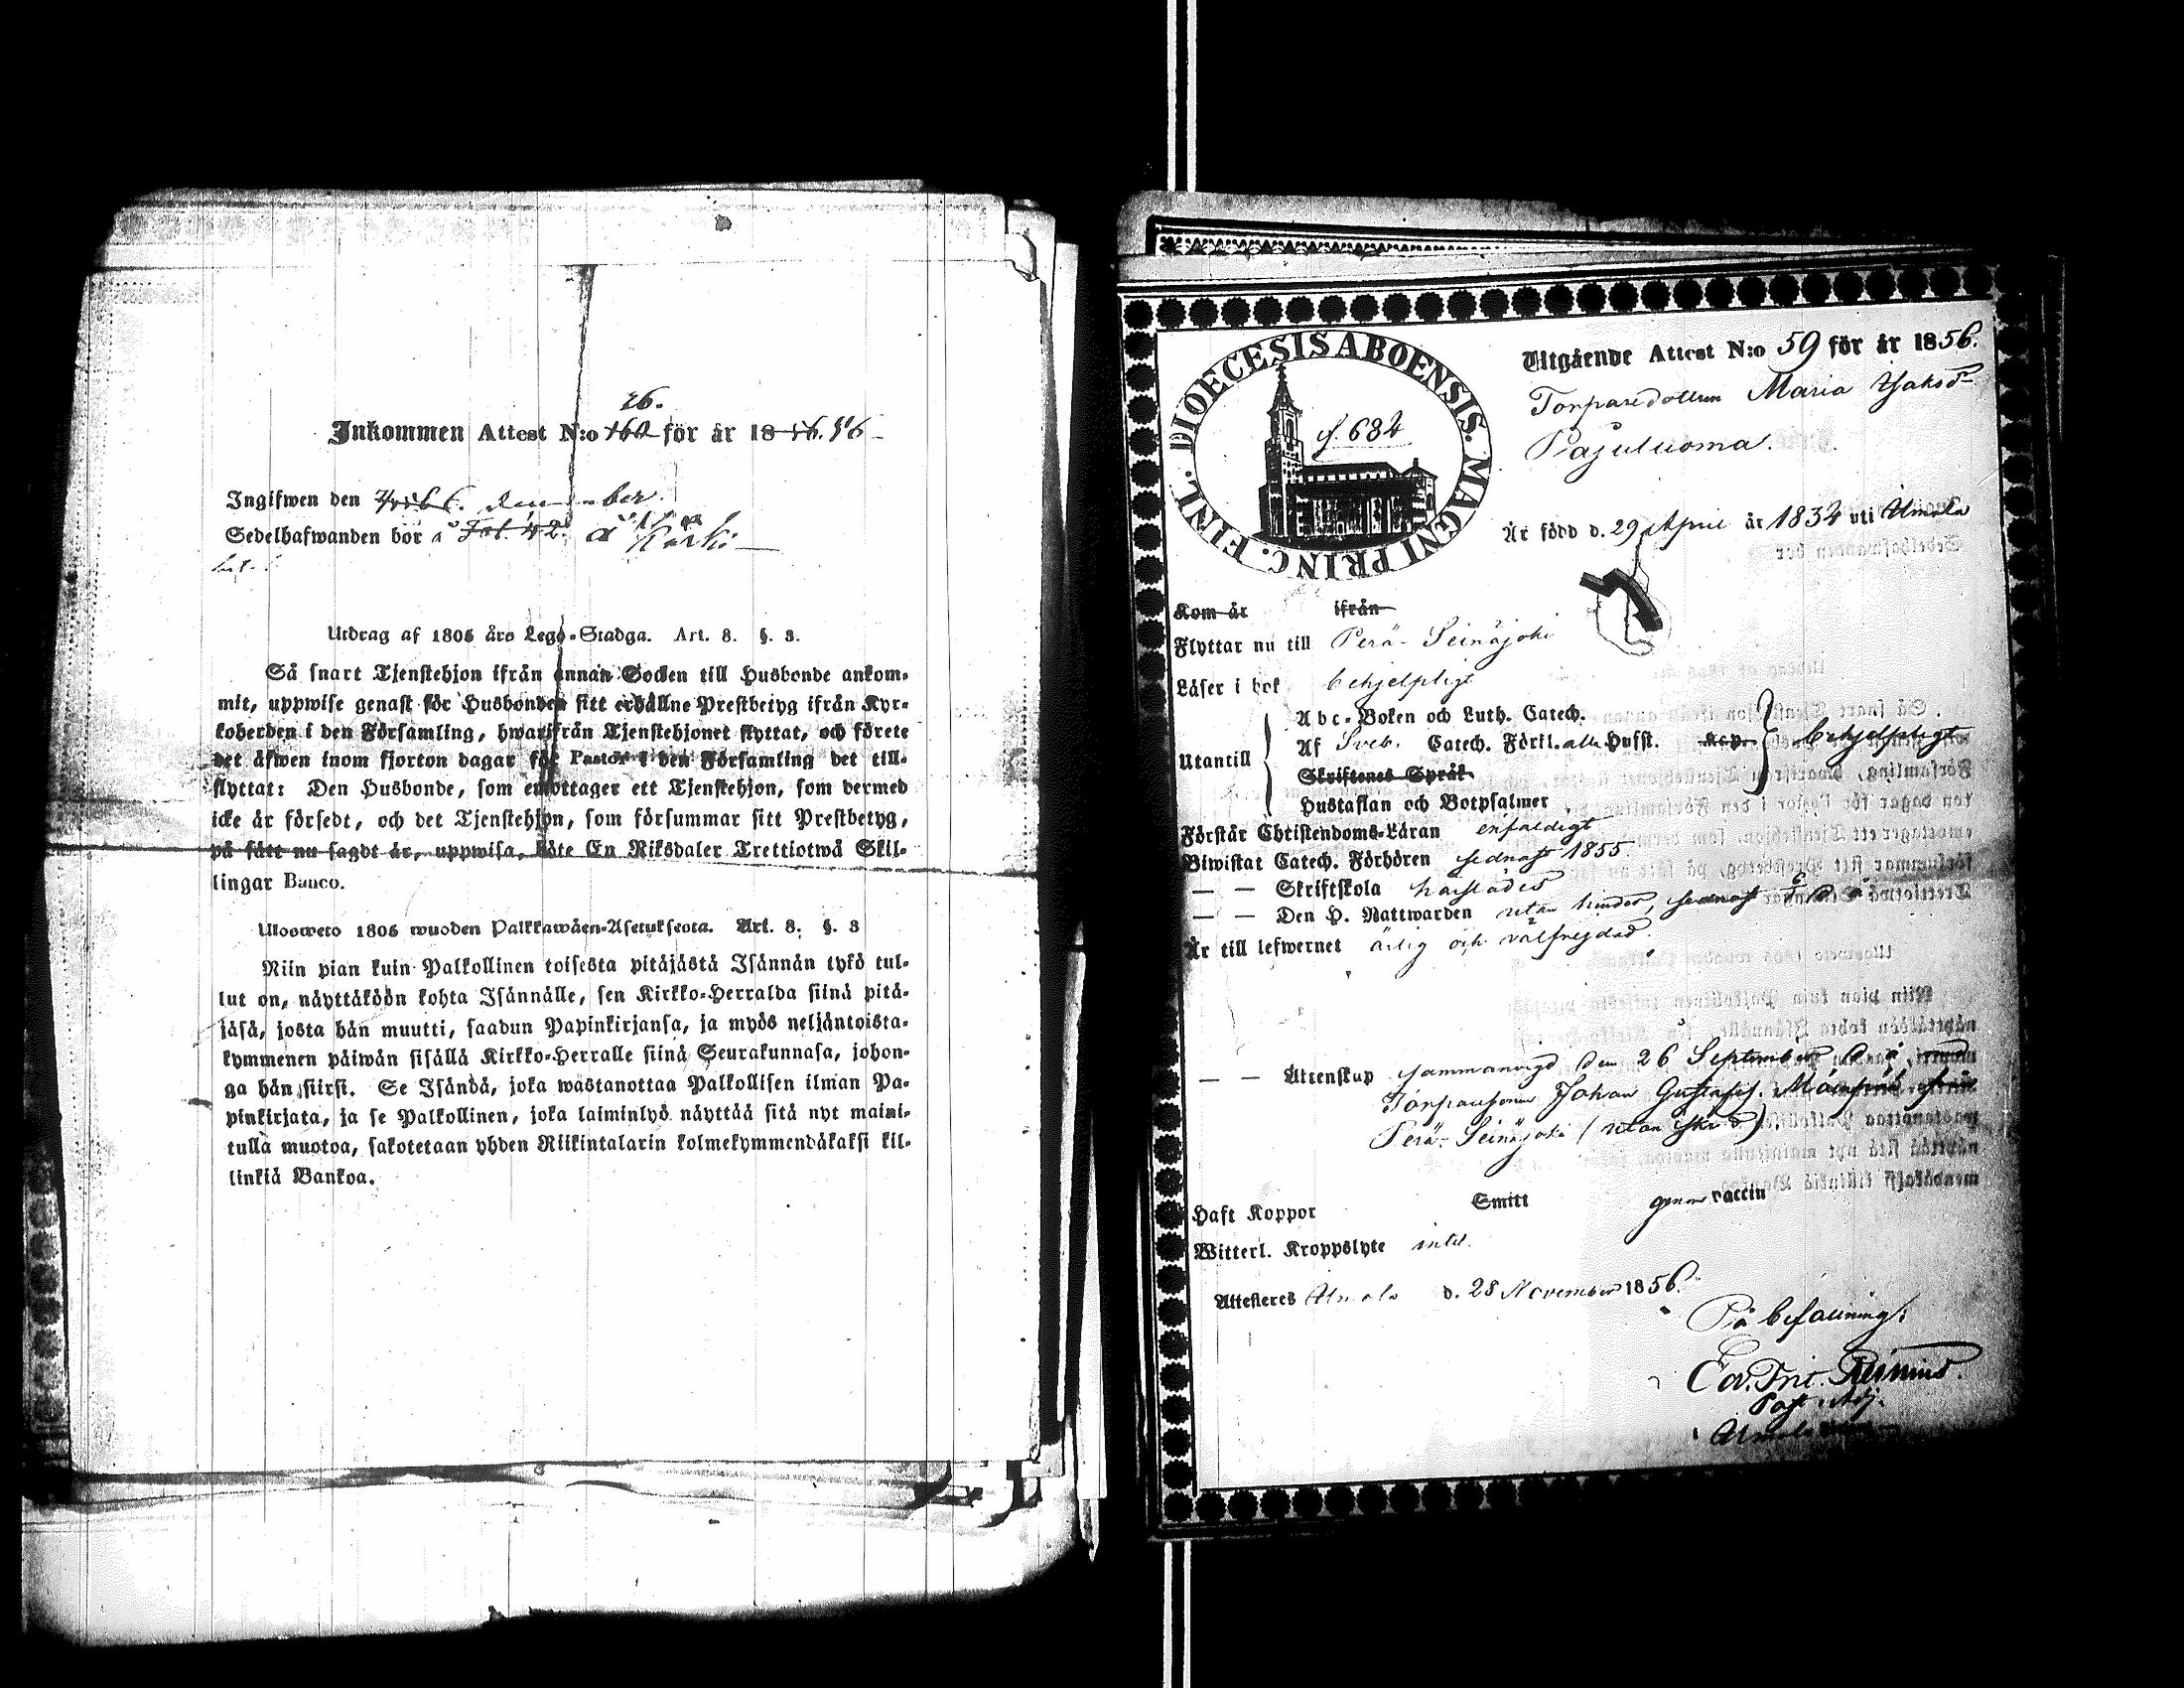 26.
Inkommen Attest N:o 160 för år 18 56. 56
Ingifwen den december.
Sedelhafwanden bor å Fol. 42. å Kärki
Utdrag af 1805 års Lego-Stadga. Art. 8. §. 3.
Så snart Tjenstehjon ifrån annan Socken till Husbonde ankom-
mit, uppwise genast för Husbonden sitt erhållne Prestbetyg ifrån Kyr-
koherden i den Församling, hwarifrån Tjenstehjonet flyttat, och förete
det äfwen inom fjorton dagar för Pastor i den Församling det till-
flyttat: Den Husbonde, som emottager ett Tjenstehjon, som dermed
icke är försedt, och det Tjenstehjon, som försummar sitt Prestbetyg,
på sätt nu sagdt är, uppwisa, böte En Riksdaler Trettiotwå Skil-
lingar Banco.
Ulosweto 1805 wuoden Palkkawäen-Asetuksesta. Art. 8. §. 3
Niin pian kuin Palkollinen toisesta pitäjästä Isännän tykö tul-
lut on, näyttäköön kohta Isännälle, sen Kirkko-Herralda siinä pitä-
jäsä, josta hän muutti, saadun Papinkirjansa, ja myös neljäntoista-
kymmenen päiwän sisällä Kirkko-Herralle siinä Seurakunnasa, johon-
ga hän siirsi. Se Isändä, joka wastanottaa Palkollisen ilman Pa-
pinkirjata, ja se Palkollinen, joka laiminlyö näyttää sitä nyt maini-
tulla muotoa, sakotetaan yhden Riikintalarin kolmekymmendäkaksi kil-
linkiä Bankoa.
DIOECESIS ABOENSIS. MAGNI PRINC. FINL.
f. 684
Utgående Attest N:o 59 för år 1856.
Torparedottren Maria Isaksd
Pajuluoma.
Är född d. 29 April år 1834 uti Ilmola
Kom år ifrån
Flyttar nu till Perä-Seinäjoki
Läser i bok behjelpligt
Utantill
Abc-Boken och Luth. Catech.
Af Sveb. Catech. Förkl. alla Husst. Kap. behjelpligt
Skriftenes Språk
Hustaflan och Botpsalmer
Förstår Christendoms-Läran enfaldigt
Biwistat Catech. Förhören sednast 1855.
— — Skriftskola härstädes
— — Den H. Nattwarden utan hinder, sednast
Är till lefwernet ärlig och välfrejdad.
— — Ägtenskap sammanvigd den 26 September d. å. med
Torparesonen Johan Gustafss. Mäenpää från
Perä-Seinäjoki (utan skrd).
Haft Koppor Smitt genom vaccin
Witterl. Kroppslyte intet.
Attesteres Ilmola d. 28 November 1856.
På befallning:
Past. Adj.
Ilmola